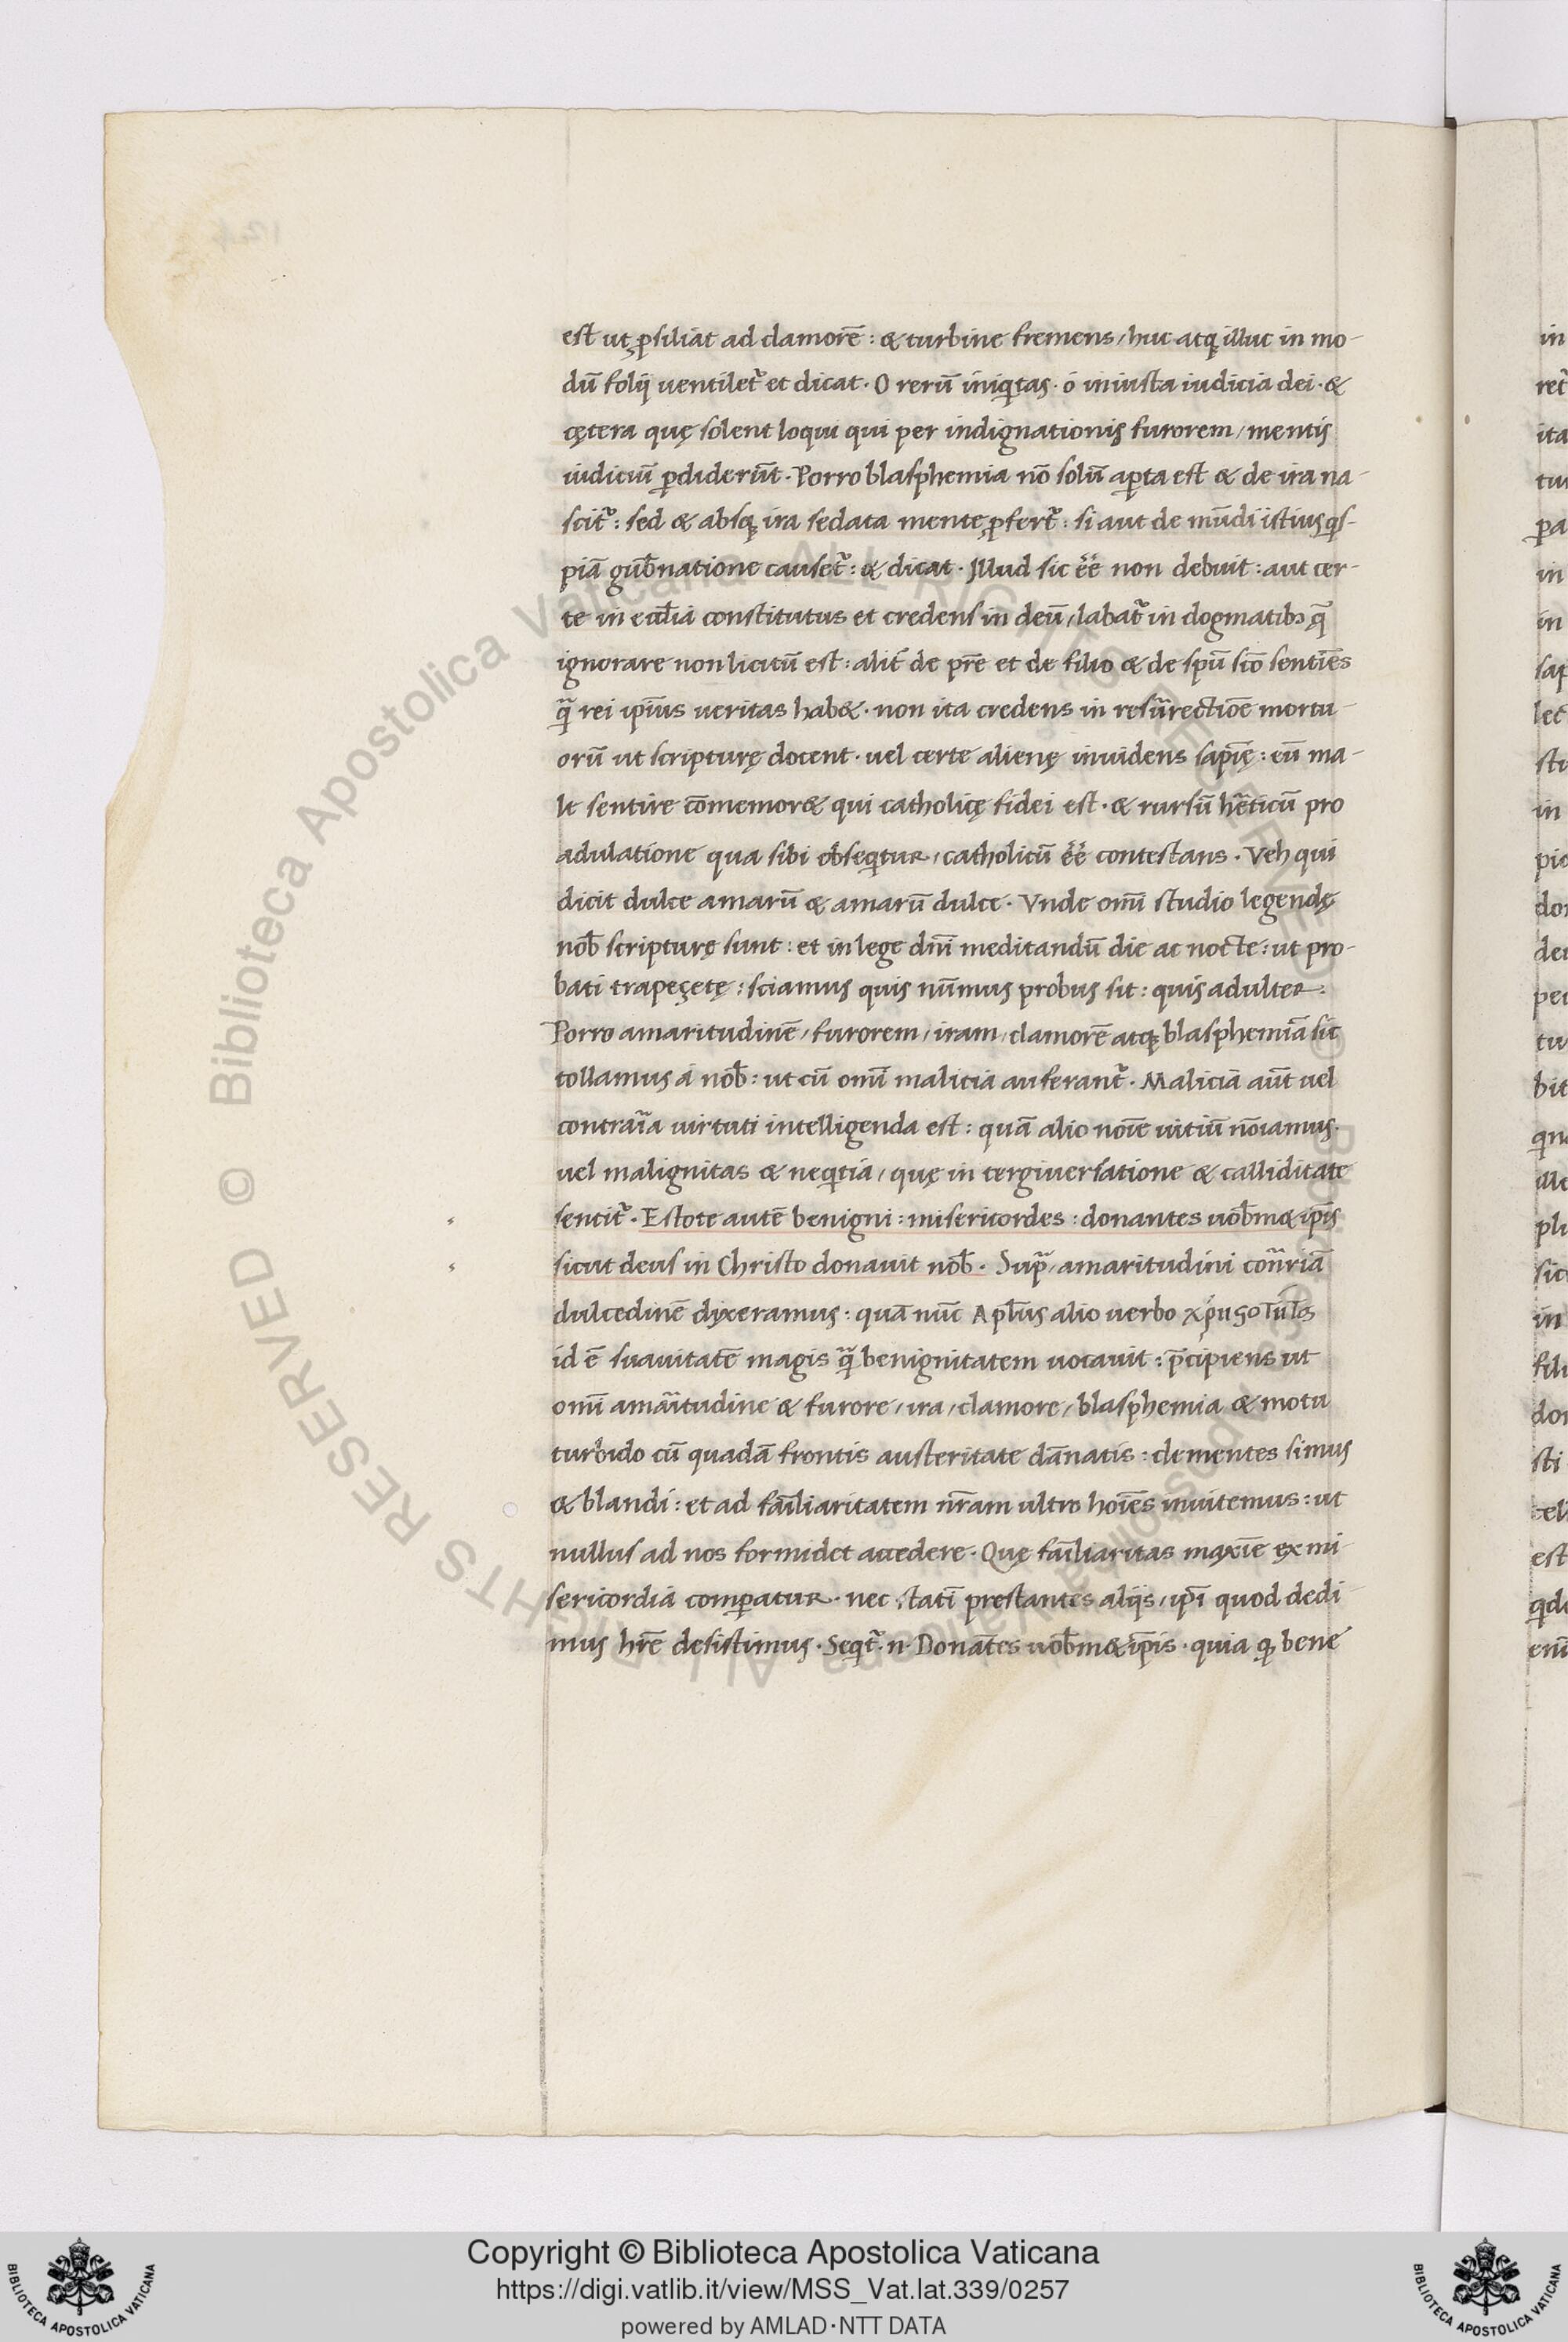 est ut ꝓsiliat ad clamorē : & turbine fremens / huc atq; illuc in mo-
dū folij uentilet᷑ et dicat · O rerū iniqͥtas · o iniusta iudicia dei · &
cętera quę solent loqui qui per indignationis furorem / mentis
iudiciū ꝑdiderūt · Porro blasphemia nō solū aꝑta est & de ira na-
scit᷑ : sed & absq; ira sedata mente ꝓfert᷑ : si aut de mūdi istius qͥs-
piā gub̄natione causet᷑ : & dicat · Illud sic ēē non debuit : aut cer-
te in eccl̄ia constitutus et credens in deū / labat᷑ in dogmatibꝫ q̄
ignorare non licitū est : alit̄ de pr̄e et de filio & de spū scō sentiēs
q̄ rei ipīus ueritas hab& · non ita credens in resurrectiōe mortu-
orū ut scripturę docent · uel certe alienę inuidens sapīę : eū ma-
le sentire cōmemor& qui catholicę fidei est · & rursū hēticū pro
adulatione qua sibi obseqͥtur / catholicū ēē contestans · Veh qui
dicit dulce amarū & amarū dulce · Vnde omī studio legendę
nob̄ scripturę sunt : et in lege dnī meditandū die ac nocte : ut pro-
bati trapeçetę : sciamus quis nūmus probus sit : quis adulter :
Porro amaritudinē / furorem / iram / clamorē atq; blasphemiā sic
tollamus a nob̄ : ut cū omī malicia auferant᷑ · Malicia aūt uel
contraria uirtuti intelligenda est : quā alio noīe uitiū nōiamus ·
uel malignitas & neqͥtia / quę in tergiuersatione & calliditate
sentit᷑ · Estote autē benigni : misericordes : donantes uob̄m& ipīs
sicut deus in Christo donauit nob̄ · Supͣ / amaritudini conͬriā
dulcedinē dyxeramus : quā nūc Apl̄us alio uerbo
id ē suauitatē magis q̄ benignitatem uocauit : p̄cipiens ut
omī amaͥtudine & furore / ira / clamore / blasphemia & motu
turbido cū quadā frontis austeritate dānatis : clementes simus
& blandi : et ad faīliaritatem nr̄am ultro hoīēs inuitemus : ut
nullus ad nos formidet accedere · Quę faīliaritas maxīe ex mi-
sericordia comꝑatur · nec statī prestantes alqͥs / ipī quod dedi-
mus hr̄e desistimus · Seqͥt᷑ · n · Donātes uob̄m& ip̄is · quia bene
Copyright © Biblioteca Apostolica Vaticana
https://digi.vatlib.it/view/MSS_Vat.lat.339/0257
powered by AMLAD·NTT DATA